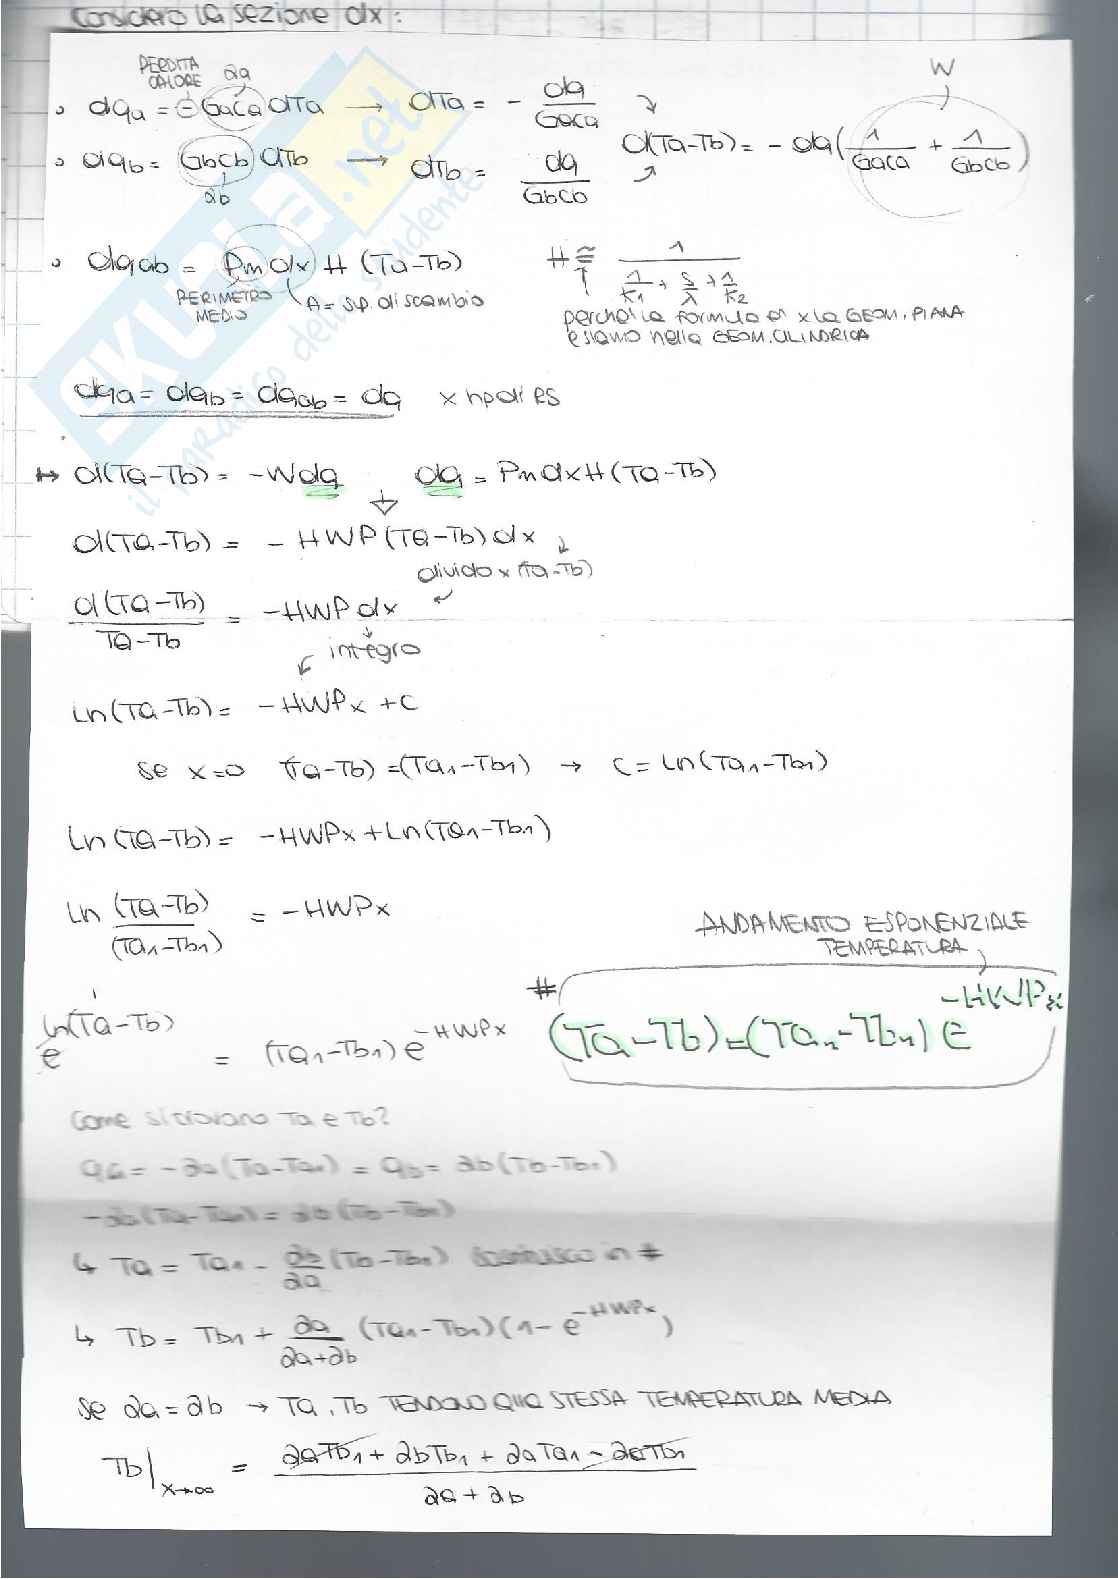 Considero la sezione dx:
PERDITA CALORE
∂a
dqa = - GaCa dTa → dTa = - dq/GaCa
W
d(Ta-Tb) = - dq (1/GaCa + 1/GbCb)
dqb = GbCb dTb → dTb = dq/GbCb
∂b
dqab = Pm dx H (Ta-Tb)
H ≅ 1/(1/K1 + s/λ + 1/K2)
PERIMETRO MEDIO
A = sup. di scambio
perché la formula è x la GEOM. PIANA
e siamo nella GEOM. CILINDRICA
dqa = dqb = dqab = dq x hp di es
d(Ta-Tb) = -Wdq dq = Pm dx H (Ta-Tb)
d(Ta-Tb) = - HWP (Ta-Tb) dx
divido x (Ta-Tb)
d(Ta-Tb)/Ta-Tb = -HWP dx
integro
Ln(Ta-Tb) = -HWPx + c
se x=0 (Ta-Tb) = (Ta1-Tb1) → c = Ln(Ta1-Tb1)
Ln(Ta-Tb) = -HWPx + Ln(Ta1-Tb1)
Ln (Ta-Tb)/(Ta1-Tb1) = -HWPx
ANDAMENTO ESPONENZIALE
TEMPERATURA
e^ln(Ta-Tb) = (Ta1-Tb1) e^-HWPx
# (Ta-Tb) = (Ta1-Tb1) e^-HWPx
Come si trovano Ta e Tb?
qa = -∂a(Ta-Ta1) = qb = ∂b(Tb-Tb1)
-∂b(Ta-Ta1) = ∂b(Tb-Tb1)
↳ Ta = Ta1 - ∂b/∂a (Tb-Tb1) sostituisco in #
↳ Tb = Tb1 + ∂a/∂a+∂b (Ta1-Tb1) (1 - e^-HWPx)
se ∂a = ∂b → Ta, Tb TENDONO alla STESSA TEMPERATURA MEDIA
Tb|x→∞ = ∂aTb1 + ∂bTb1 + ∂aTa1 - ∂aTb1/∂a + ∂b
SKUOLA.net
il paradiso dello studente